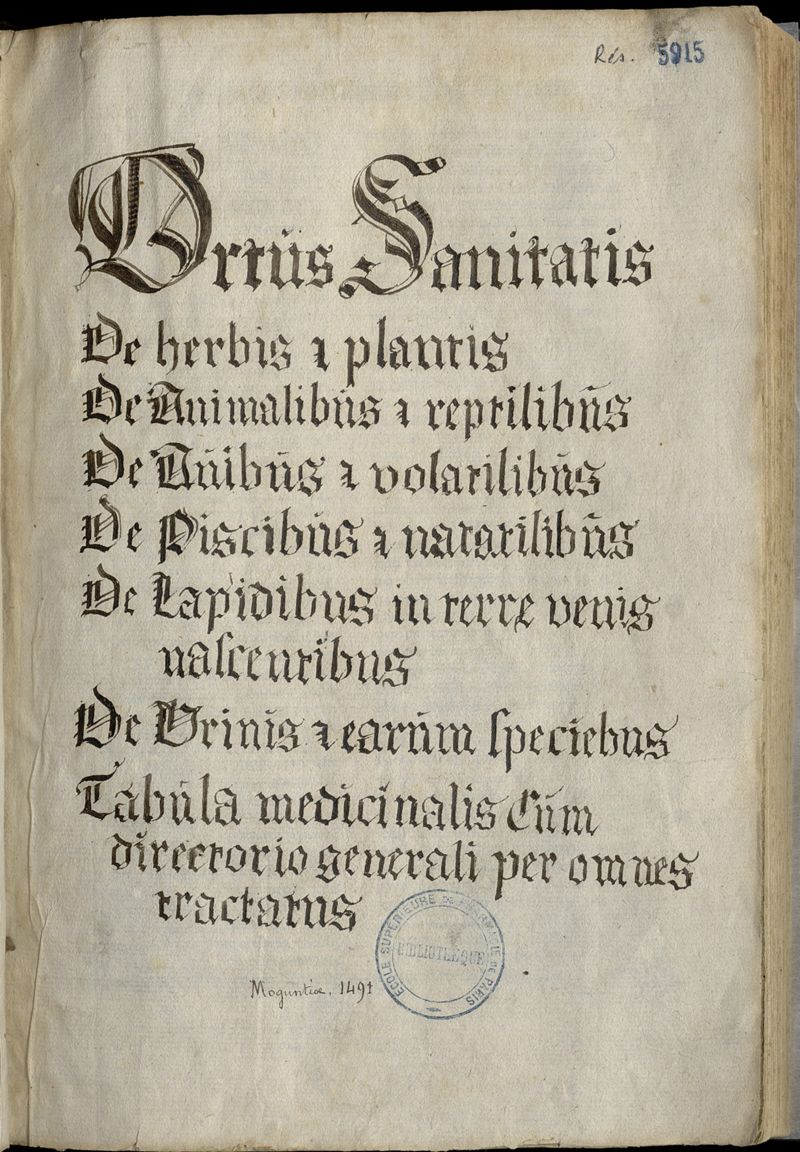 Rés. 5915
Ortus Sanitatis
De herbis ⁊ plantis
De Animalibus ⁊ reptilibus
De Auibus ⁊ volatilibus
De Piscibus ⁊ natatilibus
De Lapidibus in terre venis
nascentibus
De Vrinis ⁊ earum speciebus
Tabula medicinalis Cum
directorio generali per omnes
tractatus
ECOLE SUPERIEURE DE PHARMACIE DE PARIS
BIBLIOTHEQUE
Moguntiæ, 1491